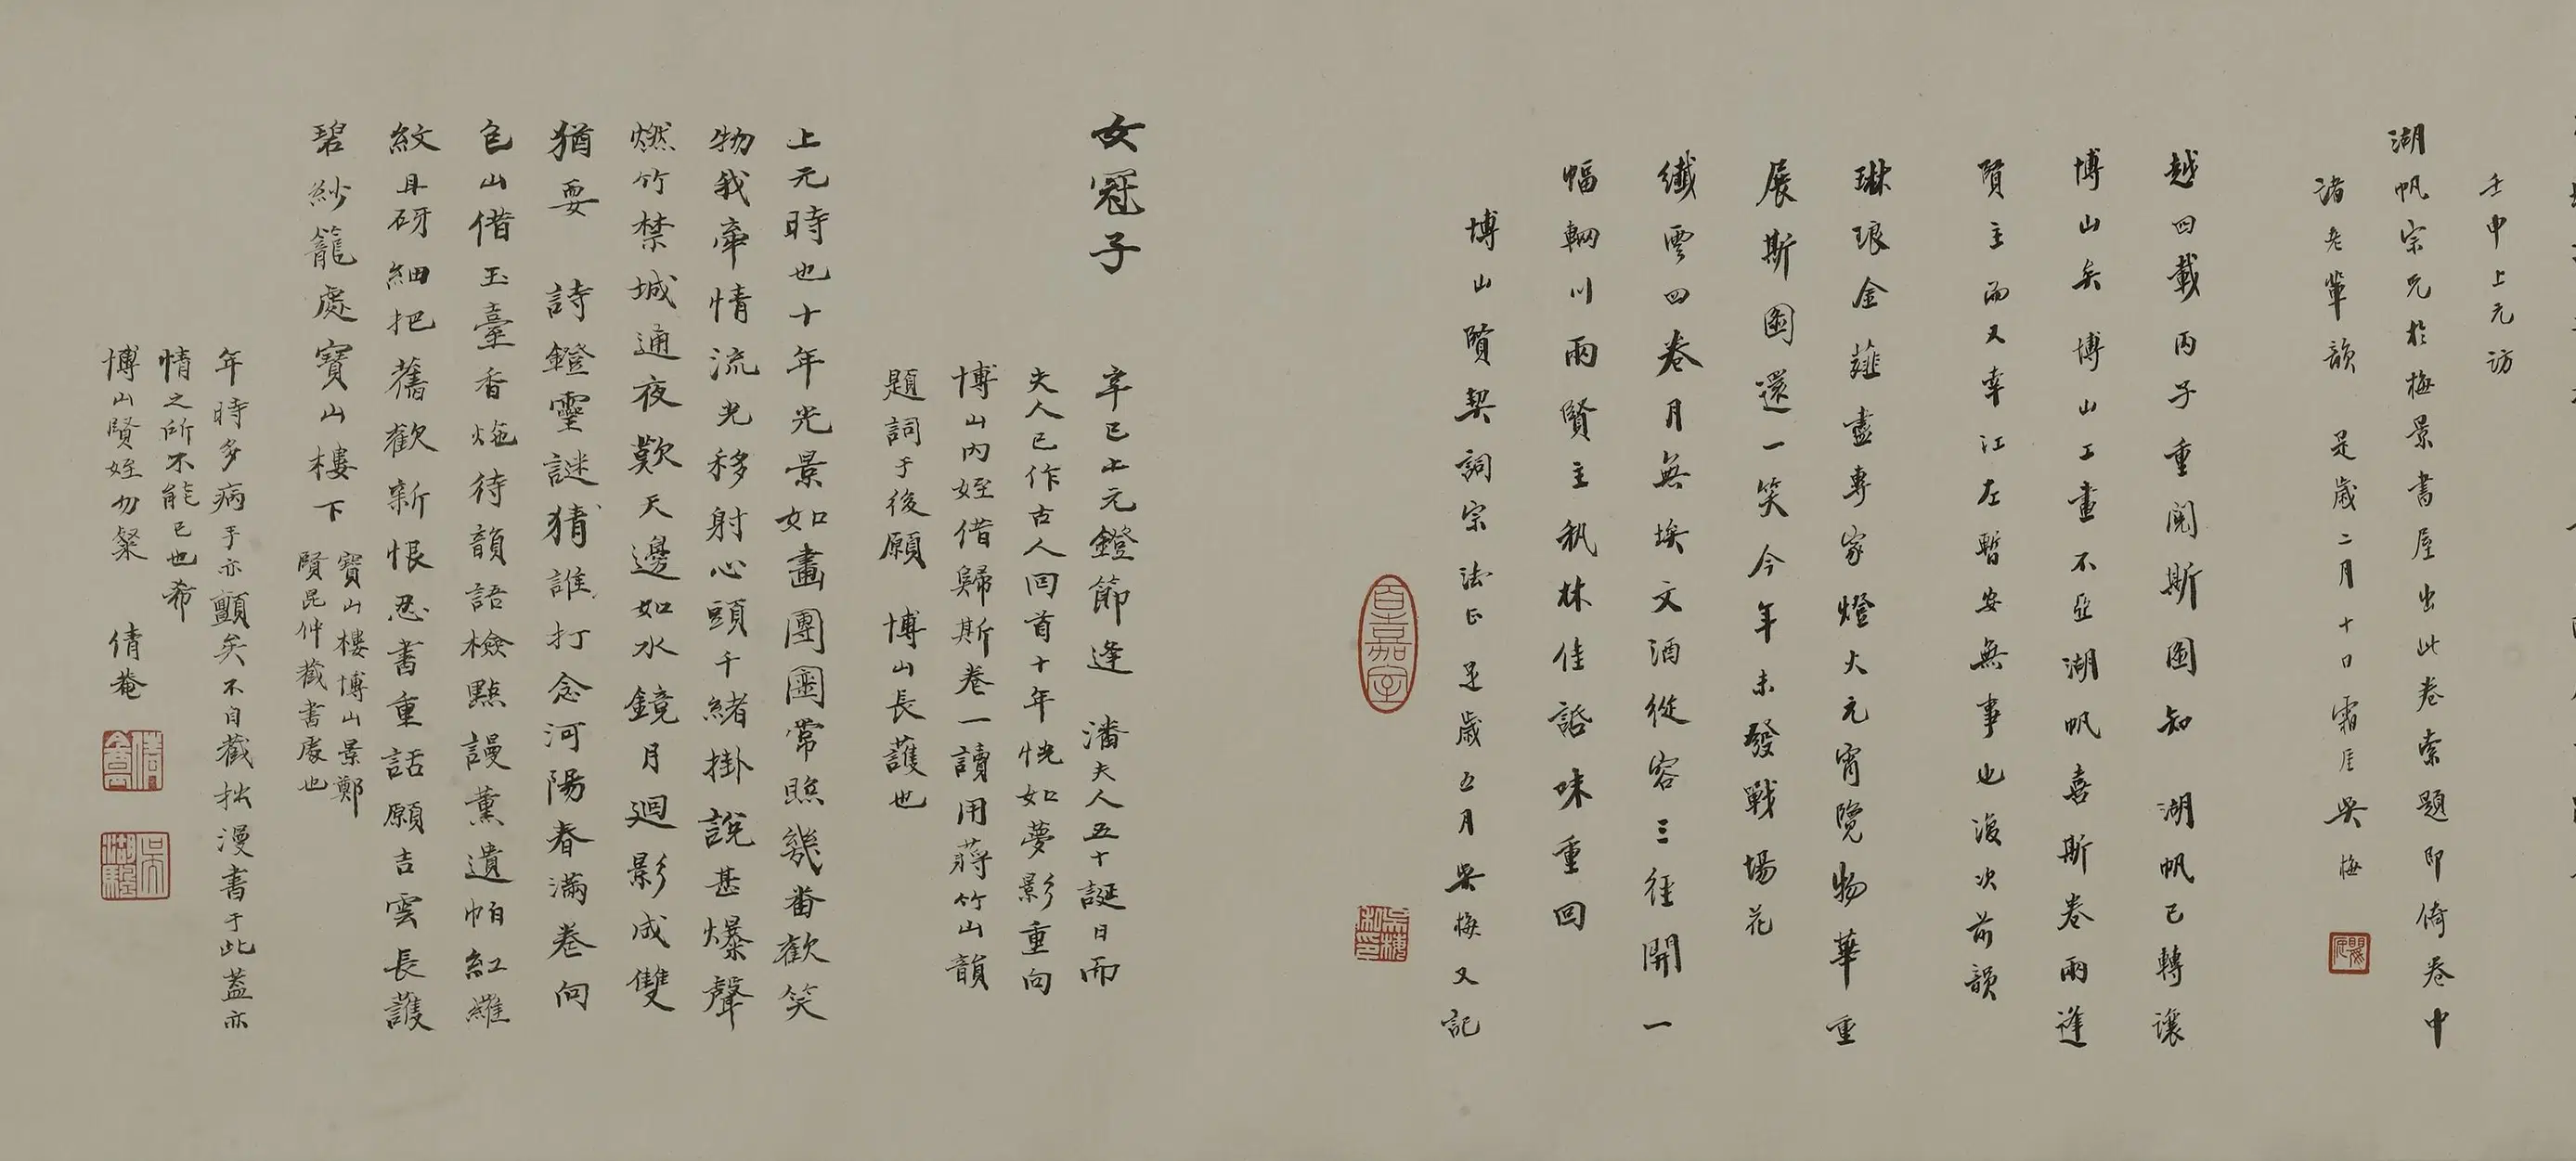 壬申上元访
湖帆宗兄於梅景書屋出此卷索題即倚卷中
諸老輩韻 是歲二月十日霜厓吳梅
越四載丙子重閱斯圖知 湖帆已轉讓
博山矣博山工畫不亞湖帆喜斯卷兩逢
賢主而又幸江左暫安無事也復次前韻
琳琅金薤盡專家燈火元宵覽物華重
展斯圖還一笑今年未發戰場花
纖雲四卷月無埃文酒從容三徑開一
幅輞川兩賢主秇林佳話味重回
博山賢契詞宗法正 是歲五月吳梅又記
女冠子
辛巳上元鐙節逢 潘夫人五十誕日而
夫人已作古人回首十年恍如夢影重向
博山內姪借歸斯卷一讀用蔣竹山韻
題詞于後願 博山長護也
上元時也十年光景如畫團圞常照幾番歡笑
物我牽情流光移射心頭千緒掛說甚爆聲
燃竹禁城通夜歎天邊如水鏡月迴影成雙
猶耍 詩鐙靈謎猜誰打念河陽春滿卷向
包山借玉臺香灺待韻語檢點謾薰遺帕紅羅
紋冄砑細把舊歡新恨忍書重話願吉雲長護
碧紗籠處寶山樓下
寶山樓博山景鄭
賢昆仲藏書處也
年時多病手亦顫矣不自藏拙漫書于此蓋亦
情之所不能已也希
博山賢姪勿粲 倩菴